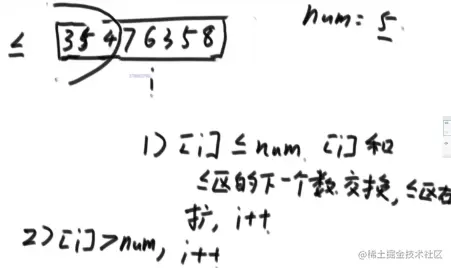 num = 5
≤ 35476358
i
1) [i] ≤ num, [i] 和
≤区的下一个数交换, ≤区右
扩, i++
2) [i] > num, i++
@稀土掘金技术社区